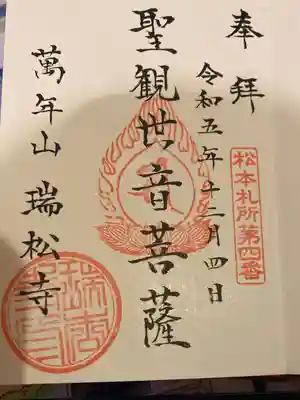 奉拝
松本札所第四番
令和五年十二月四日
聖観世音菩薩
萬年山 瑞松寺